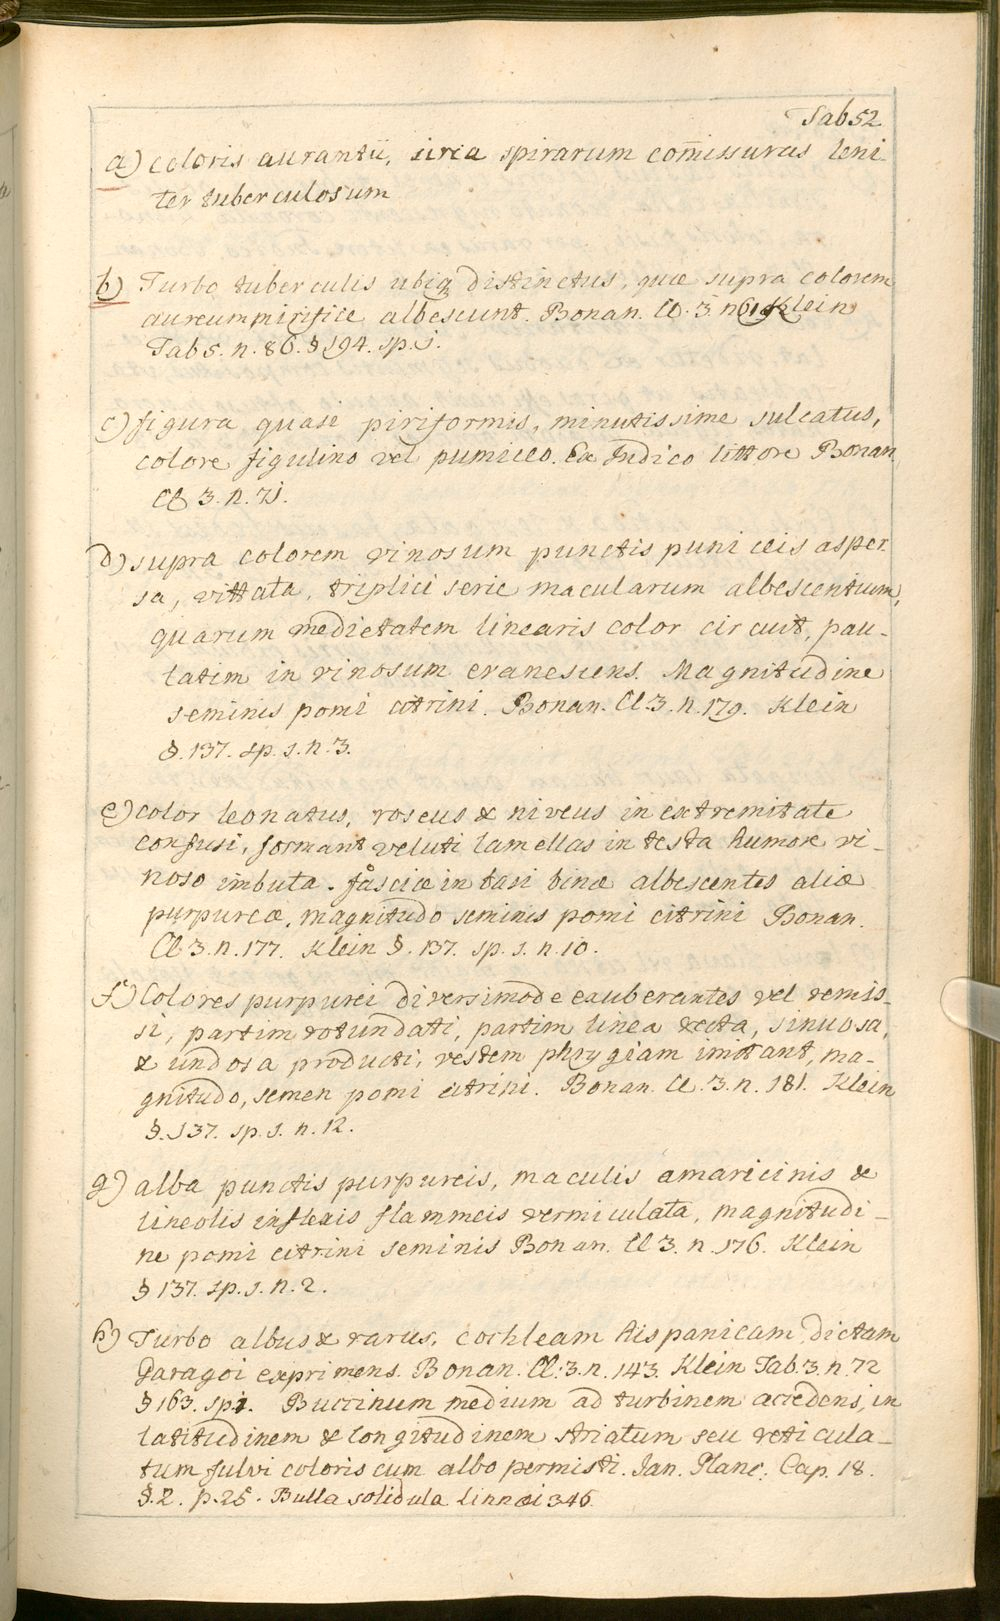 Tab 52
a) coloris aurantii, circa spirarum com̄issuras leni-
ter tuberculosum
b) Turbo tuberculis ubiq distinctus, quæ supra colorem
aureum mirifice albescunt. Bonan. Cl. 3. n 61 Klein
Tab 5. n. 86. § 194. sp. 1.
c) figura quasi piriformis, minutissime sulcatus,
colore figulino vel pumiceo. Ex Indico littore Bonan.
Cl 3. n. 71.
d) supra colorem vinosum punctis puniceis asper-
sa, vittata, triplici serie macularum albescentium,
quarum medietatem linearis color circuit, pau-
latim in vinosum evanescens. Magnitudine
seminis pomi citrini. Bonan. Cl. 3. n. 179. Klein
§. 137. sp. 1. n. 3.
e) color leonatus, roseus & niveus in extremitate
confusi, formant veluti lamellas in testa humore vi-
noso imbuta. fasciæ in basi binæ albescentes aliæ
purpureæ, magnitudo seminis pomi citrini Bonan.
Cl. 3. n. 177. Klein §. 137. sp. 1. n. 10.
f) Colores purpurei diversimode exuberantes vel remis-
si, partim rotundati, partim linea recta, sinuosa,
& undosa producti, vestem phrygiam imitant, ma-
gnitudo, semen pomi citrini. Bonan. Cl. 3. n. 181. Klein
§. 137. sp. 1. n. 12.
g) alba punctis purpureis, maculis amaricinis &
lineolis inflexis flammeis vermiculata, magnitudi-
ne pomi citrini seminis Bonan. Cl 3. n. 176. Klein
§ 137. sp. 1. n. 2.
h) Turbo albus & rarus, cochleam hispanicam dictam
Daragoi exprimens. Bonan. Cl: 3. n. 143. Klein Tab. 3. n. 72
§ 163. sp 1. Buccinum medium ad turbinem accedens, in
latitudinem & longitudinem striatum seu reticula-
tum fulvi coloris cum albo permisti. Jan. Planc. Cap. 18.
§. 2. p. 25. Bulla solidula Linnæi 346.